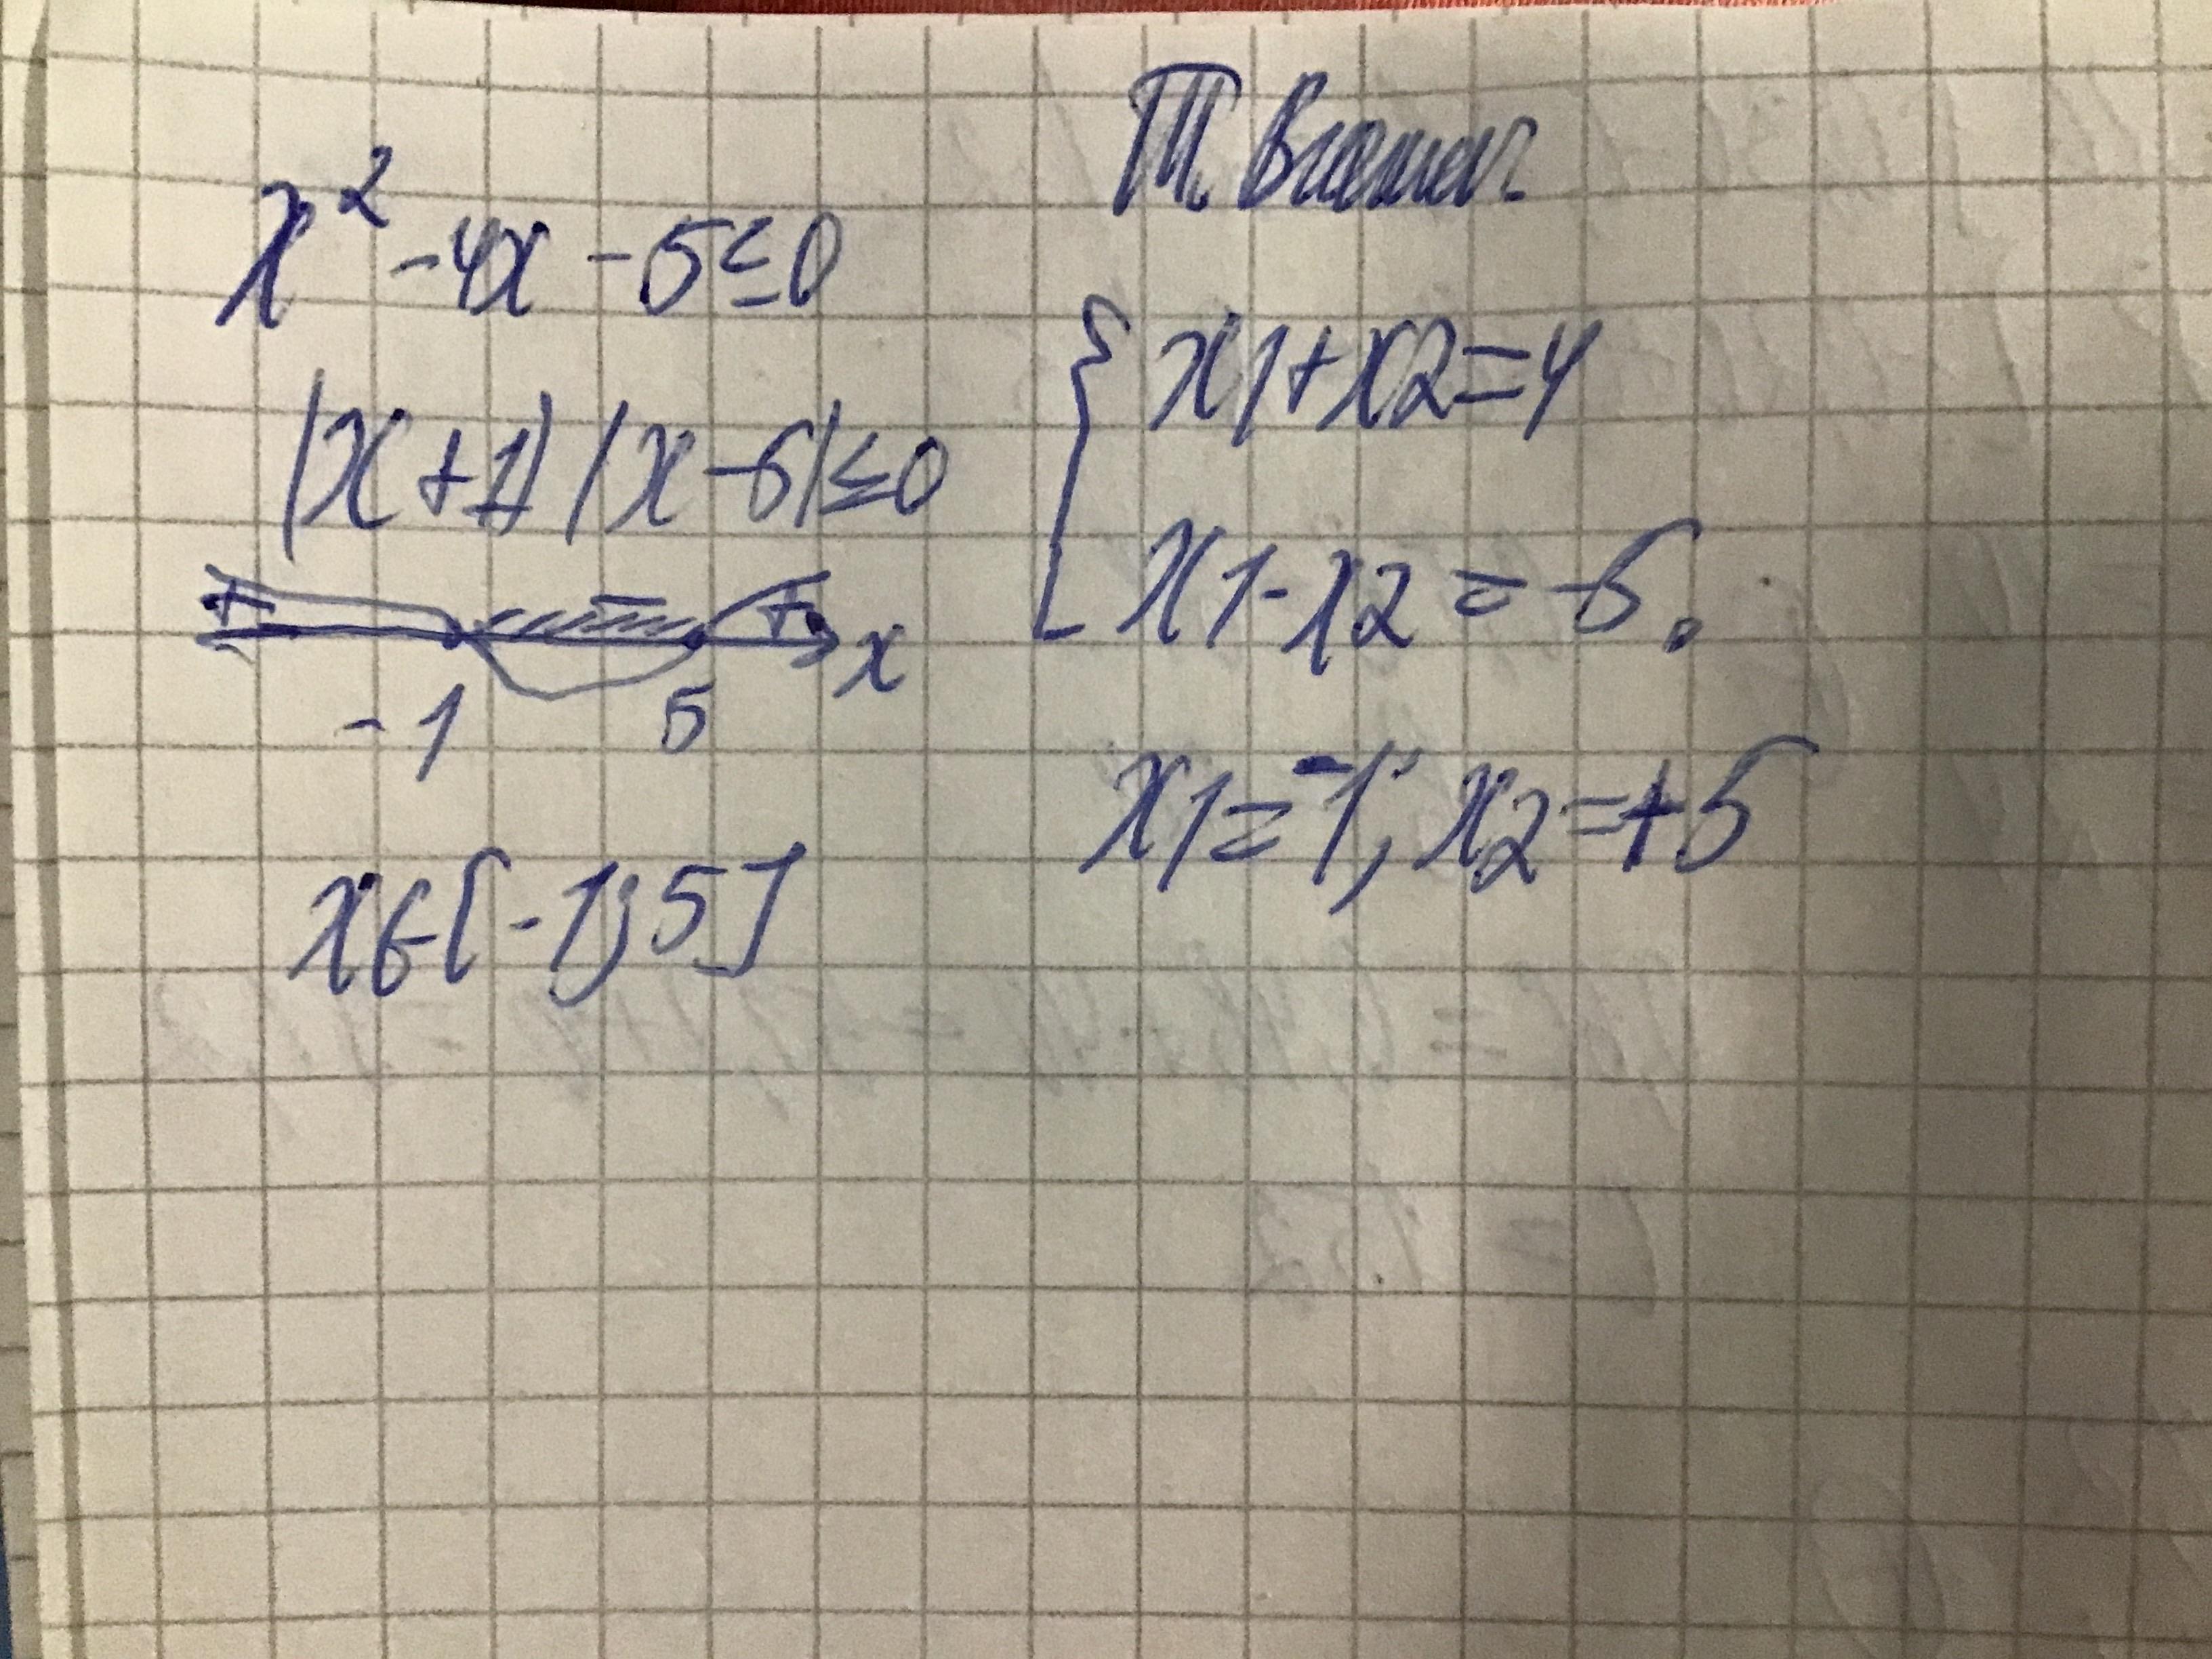 x² -4x -5≤0
(x+1)(x-5)≤0
+ - + x
-1 5
x∈[-1;5]
Т. Виета.
{x1+x2=4
x1·x2=-5.
x1=-1; x2=+5